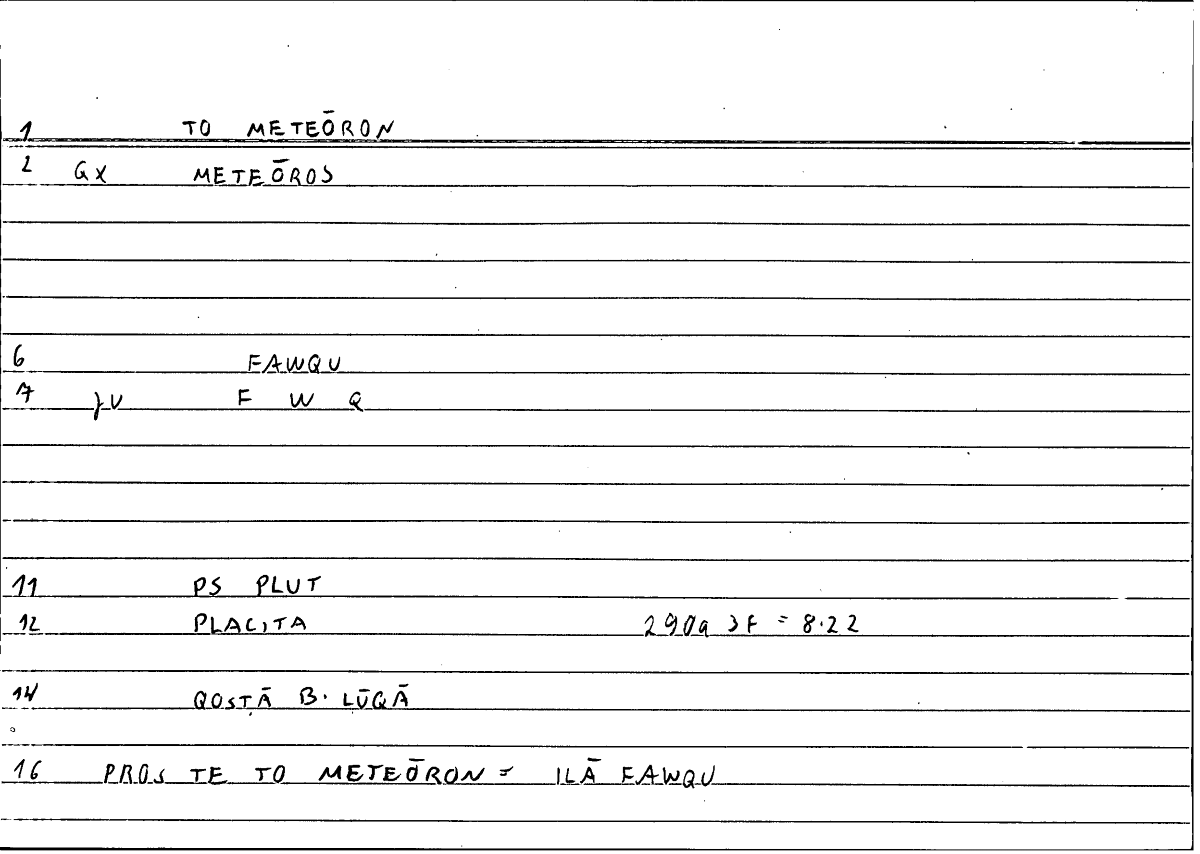 1 TO METEŌRON
2 GX METEŌROS
6 FAWQU
7 JV F W Q
11 PS PLUT
12 PLACITA 290a 3F = 8.22
14 QOSṬĀ B. LŪQĀ
16 PROS TE TO METEŌRON = ILĀ FAWQU